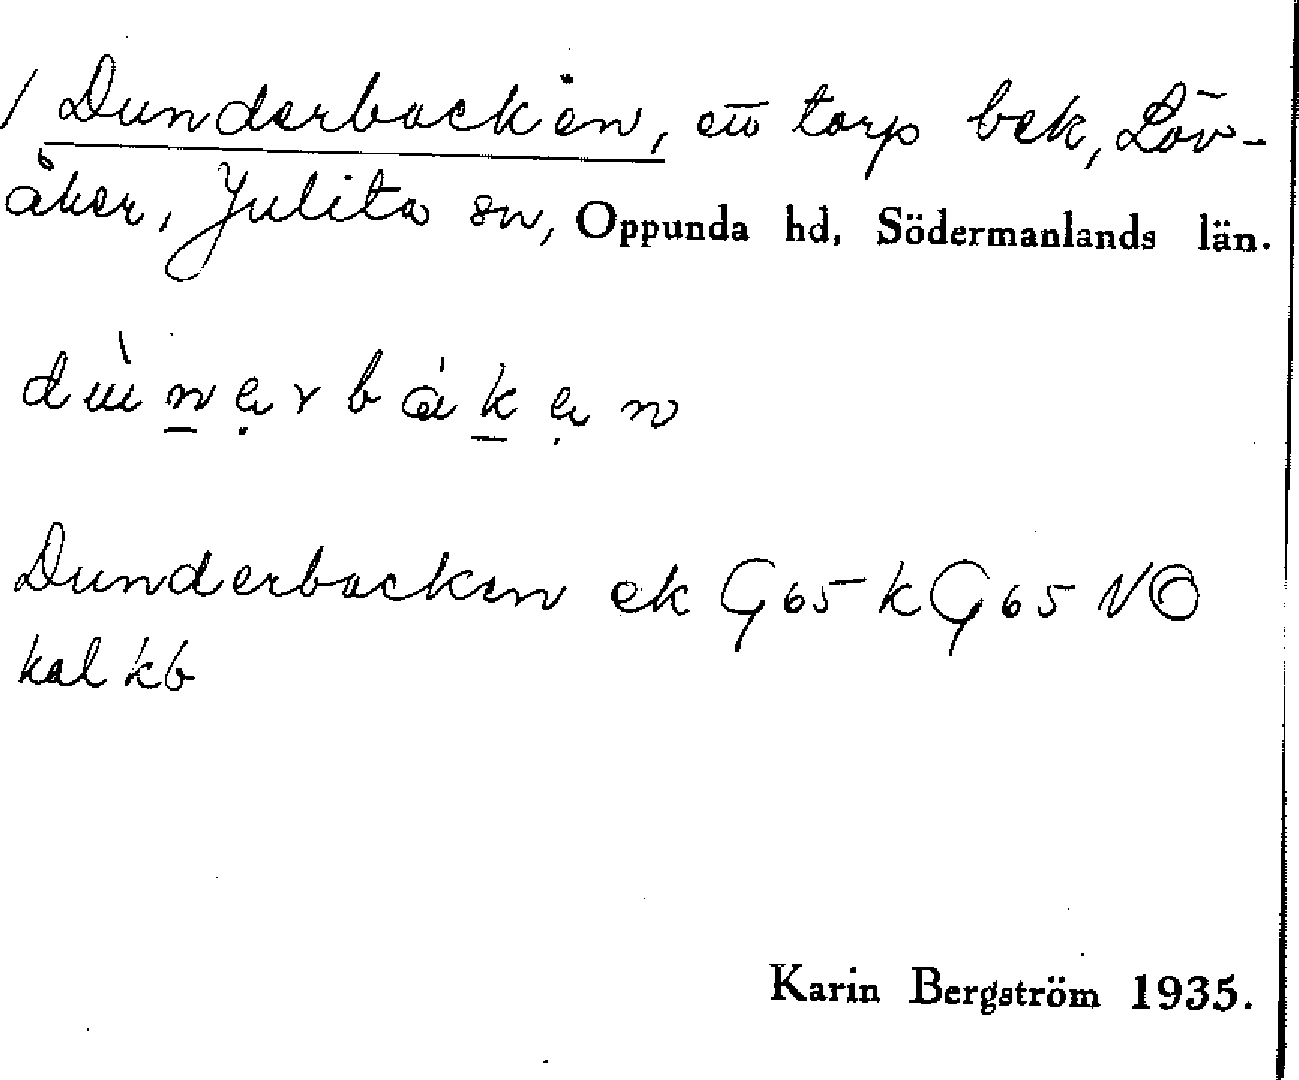 / Dunderbacken, ett torp bek, Löv-
åker, Julita sn, Oppunda hd, Södermanlands län.
dùṉẹrbáḵẹn
Dunderbacken ek G65 k G65 NO
kal kb
Karin Bergström 1935.